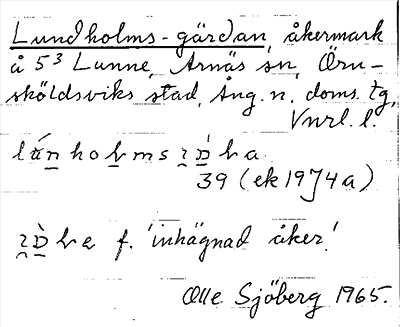 Lundholms-gärdan, åkermark
å 5³ Lunne, Arnäs sn, Örn-
sköldsviks stad, Ång. n. doms. tg,
Vnrl. l.
39 (ek 19J4a)
f. 'inhägnad åker'.
Olle Sjöberg 1965.